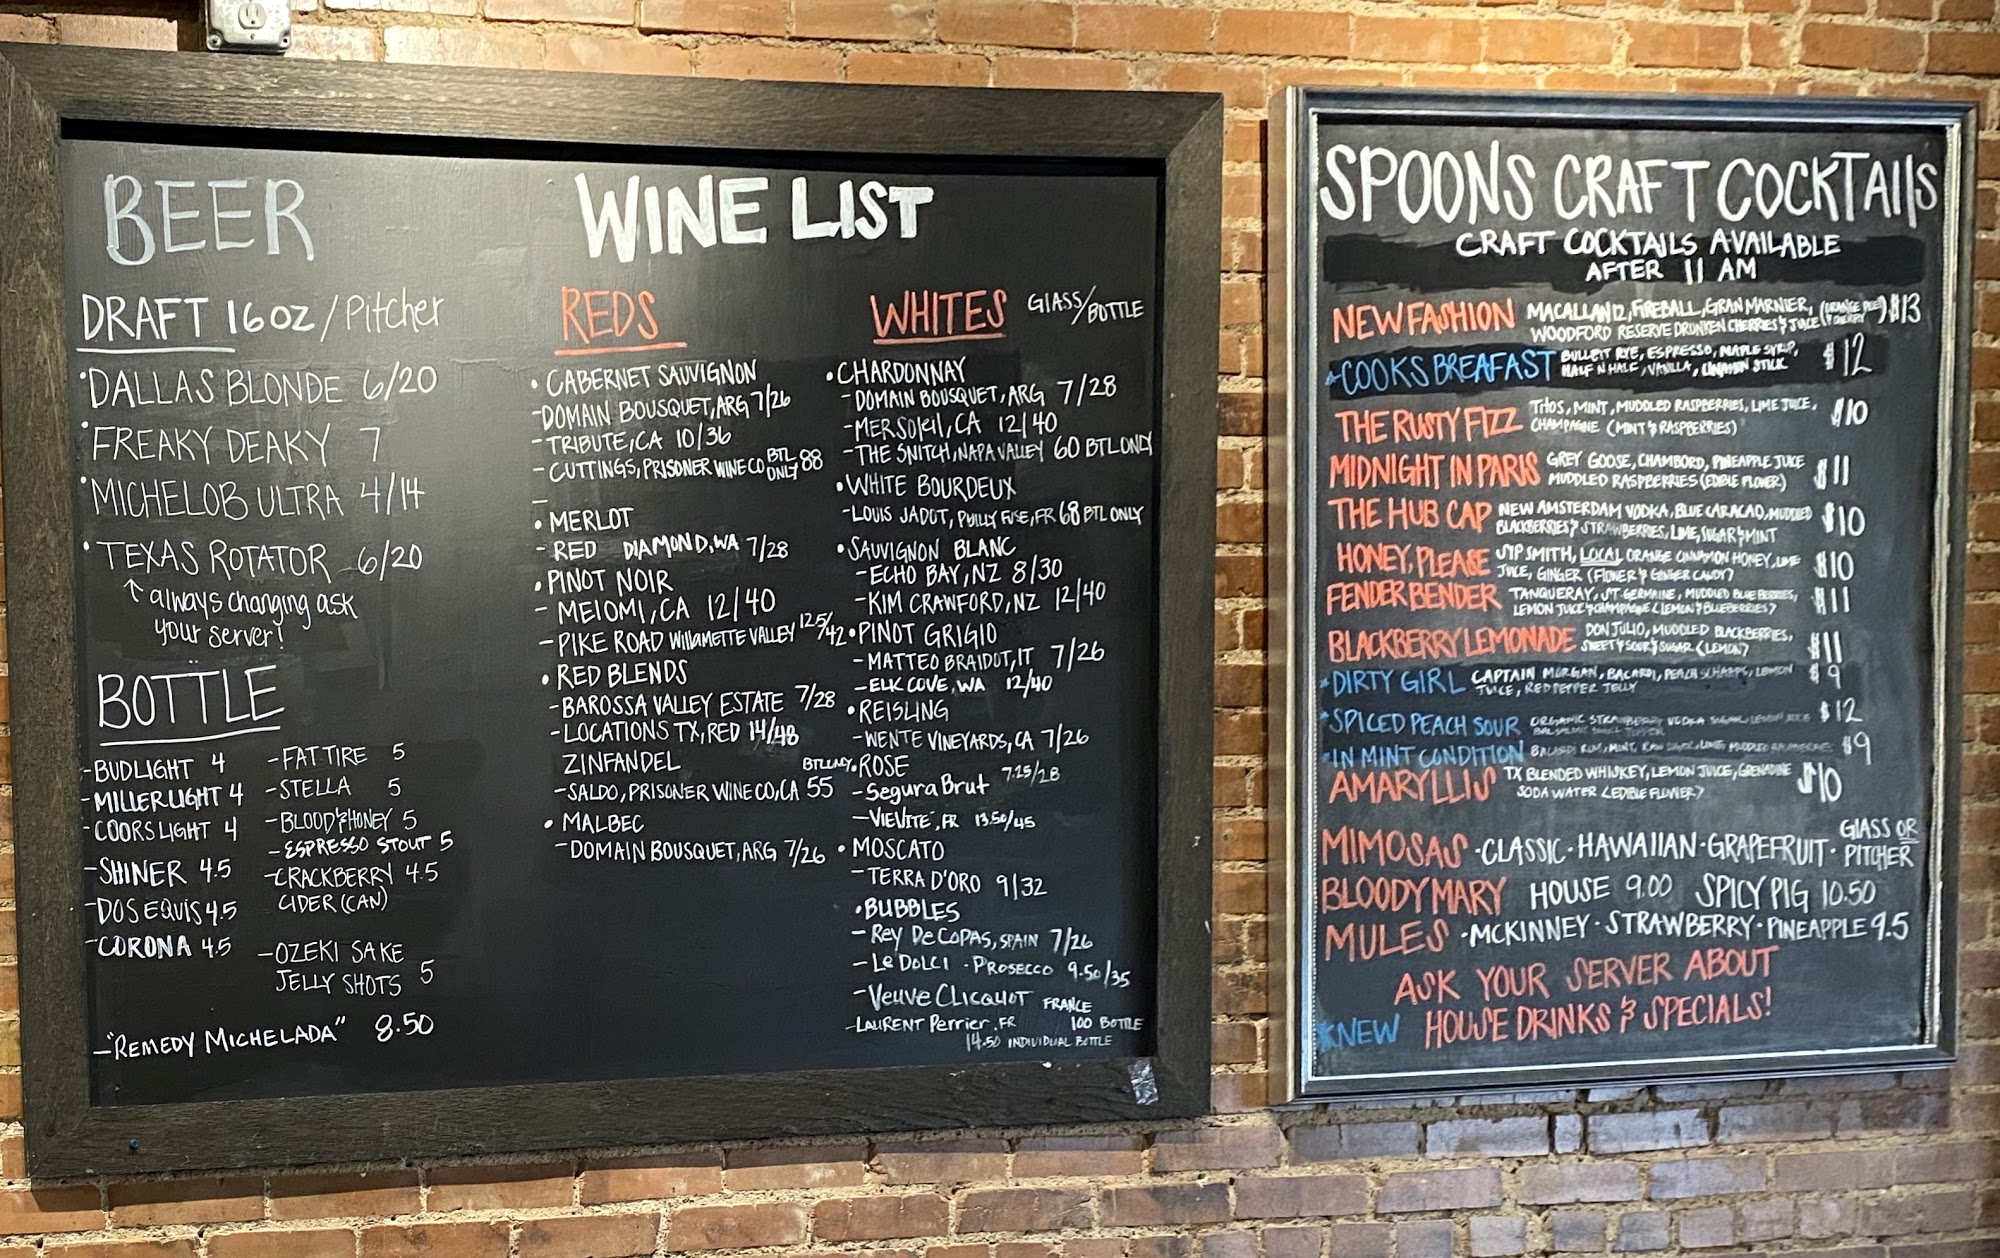 BEER
DRAFT 16OZ / Pitcher
•DALLAS BLONDE 6/20
•FREAKY DEAKY 7
•MICHELOB ULTRA 4/14
•TEXAS ROTATOR 6/20
↑ always changing ask
your server!
BOTTLE
-BUDLIGHT 4
-MILLERLIGHT 4
-COORSLIGHT 4
-SHINER 4.5
-DOS EQUIS 4.5
-CORONA 4.5
-FAT TIRE 5
-STELLA 5
-BLOOD & HONEY 5
-ESPRESSO STOUT 5
-CRACKBERRY 4.5
CIDER (CAN)
-OZEKI SAKE
JELLY SHOTS 5
-"REMEDY MICHELADA" 8.50
WINE LIST
REDS
•CABERNET SAUVIGNON
-DOMAIN BOUSQUET, ARG 7/26
-TRIBUTE, CA 10/36
-CUTTINGS, PRISONER WINE CO BTL ONLY 88
-
•MERLOT
-RED DIAMOND, WA 7/28
•PINOT NOIR
-MEIOMI, CA 12/40
-PIKE ROAD Willamette VALLEY 12.5/42
•RED BLENDS
-BAROSSA VALLEY ESTATE 7/28
-LOCATIONS TX, RED 14/48
ZINFANDEL
-SALDO, PRISONER WINE CO, CA 55 BTL ONLY
•MALBEC
-DOMAIN BOUSQUET, ARG 7/26
WHITES GLASS/BOTTLE
•CHARDONNAY
-DOMAIN BOUSQUET, ARG 7/28
-MERSOleil, CA 12/40
-THE SNITCH, NAPA VALLEY 60 BTL ONLY
•WHITE BOURDEUX
-LOUIS JADOT, PUILLY FUSE, FR 68 BTL ONLY
•SAUVIGNON BLANC
-ECHO BAY, NZ 8/30
-KIM CRAWFORD, NZ 12/40
•PINOT GRIGIO
-MATTEO BRAIDOT, IT 7/26
-ELK COVE, WA 12/40
•REISLING
-WENTE VINEYARDS, CA 7/26
•ROSE
-Segura Brut 7.25/28
-VIEVITE, FR 13.50/45
•MOSCATO
-TERRA D'ORO 9/32
•BUBBLES
-Rey De COPAS, SPAIN 7/26
-Le DOLCI - PROSECCO 9.50/35
-Veuve Clicquot FRANCE
100 BOTTLE
-LAURENT Perrier, FR
14.50 INDIVIDUAL BOTTLE
SPOONS CRAFT COCKTAILS
CRAFT COCKTAILS AVAILABLE
AFTER 11 AM
NEW FASHION MACALLAN 12, FIREBALL, GRAN MARNIER, (ORANGE PEEL & CHERRY) $13
WOODFORD RESERVE DRUNKEN CHERRIES & JUICE
*COOKS BREAFAST BULLEIT RYE, ESPRESSO, MAPLE SYRUP, $12
HALF N HALF, VANILLA, CINNAMON STICK
THE RUSTY FIZZ TITOS, MINT, MUDDLED RASPBERRIES, LIME JUICE, $10
CHAMPAGNE (MINT & RASPBERRIES)
MIDNIGHT IN PARIS GREY GOOSE, CHAMBORD, PINEAPPLE JUICE $11
MUDDLED RASPBERRIES (EDIBLE FLOWER)
THE HUB CAP NEW AMSTERDAM VODKA, BLUE CARACAO, MUDDLED $10
BLACKBERRIES & STRAWBERRIES, LIME, SUGAR & MINT
HONEY, PLEASE SIPSMITH, LOCAL ORANGE CINNAMON HONEY, LIME $10
JUICE, GINGER (FLOWER & GINGER CANDY)
FENDER BENDER TANQUERAY, ST. GERMAINE, MUDDLED BLUEBERRIES, $11
LEMON JUICE & CHAMPAGNE (LEMON & BLUEBERRIES)
BLACKBERRY LEMONADE DON JULIO, MUDDLED BLACKBERRIES, $11
SWEET & SOUR & SUGAR (LEMON)
*DIRTY GIRL CAPTAIN MORGAN, BACARDI, PEACH SCHNAPPS, LEMON $9
JUICE, RED PEPPER JELLY
*SPICED PEACH SOUR ORGANIC STRAWBERRY VODKA SUGAR, LEMON JUICE $12
*IN MINT CONDITION BACARDI RUM, MINT, RAW SUGAR, LIME, MUDDLED RASPBERRIES $9
AMARYLLIS TX BLENDED WHISKEY, LEMON JUICE, GRENADINE $10
SODA WATER (EDIBLE FLOWER)
MIMOSAS •CLASSIC•HAWAIIAN•GRAPEFRUIT• GLASS OR PITCHER
BLOODY MARY HOUSE 9.00 SPICY PIG 10.50
MULES •MCKINNEY•STRAWBERRY•PINEAPPLE 9.5
ASK YOUR SERVER ABOUT
*NEW HOUSE DRINKS & SPECIALS!